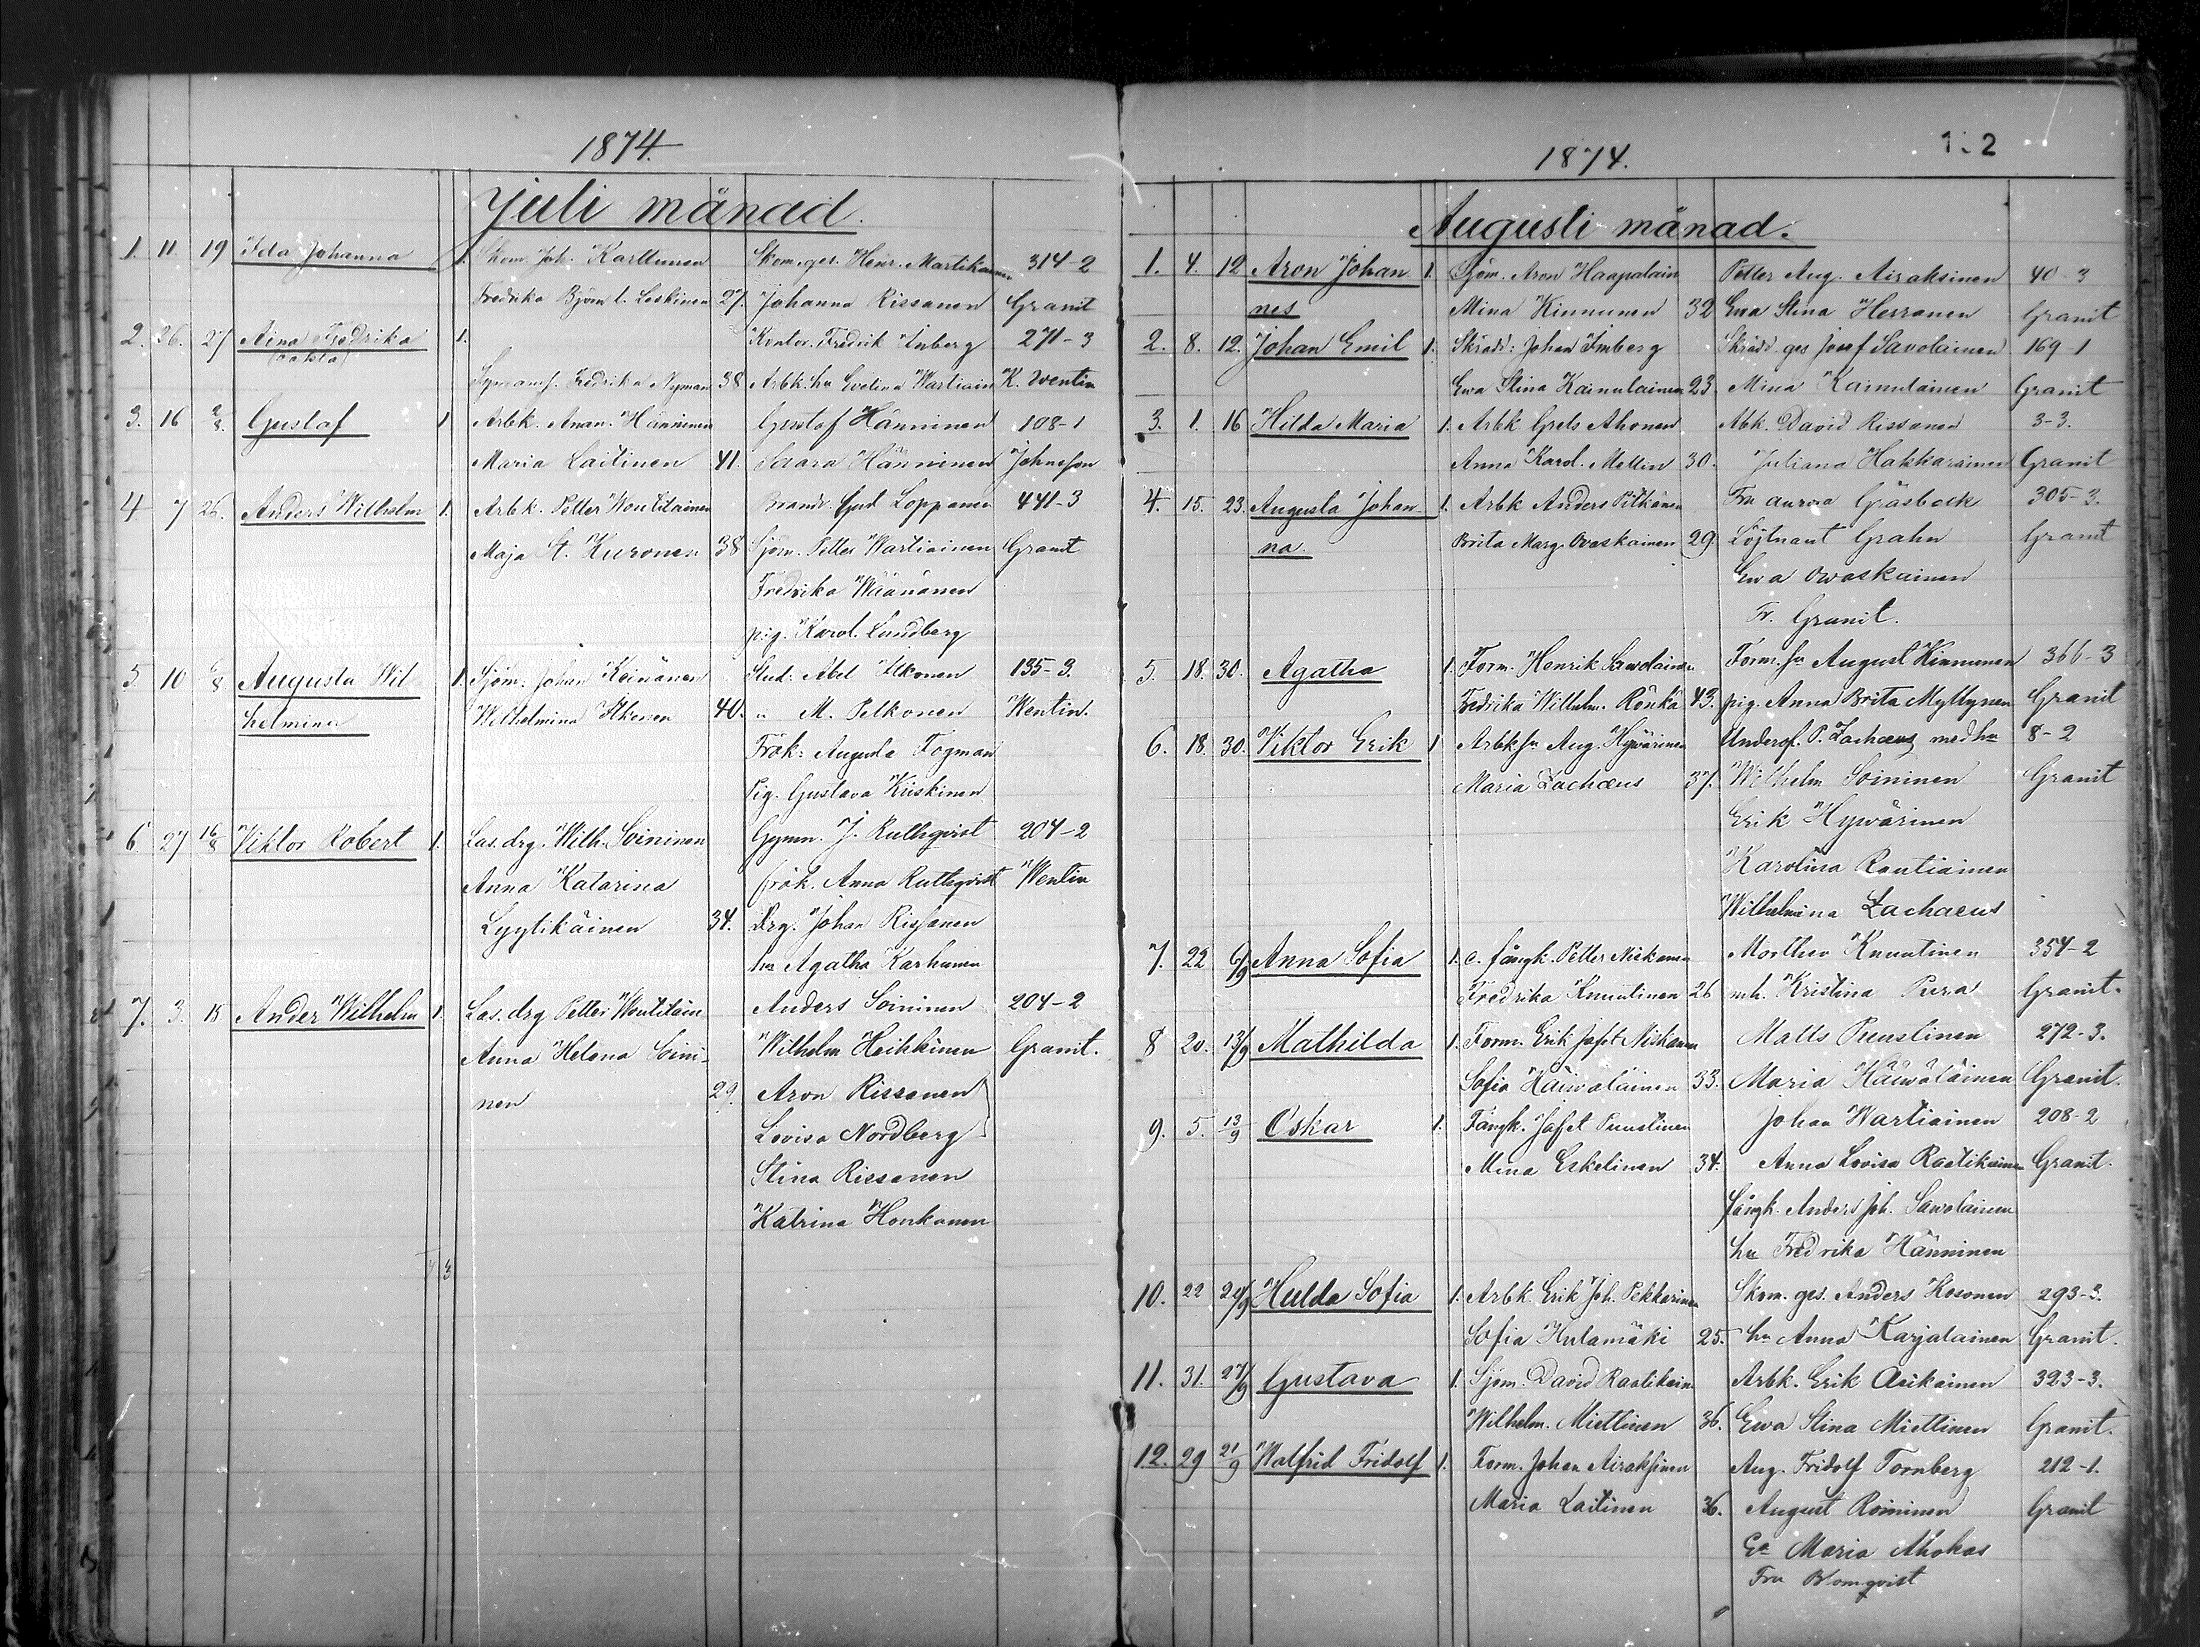 1874.
Juli månad.
1. 11 19 Ida Johanna 1. Skom. Joh. Karttunen Skom.ges. Henr. Martikainen 314-2
Fredrika Björn t. Leskinen 27. Johanna Rissanen Granit
2. 26. 27 Aina Fredrika 1. Kontor. Fredrik Imberg 271-3
(oäkta)
Fredrika Nyman 38 Arbk. hu Evelina Wartiain K. Wentin
3. 16 2/8 Gustaf 1 Arbk. Anan. Hänninen Gustaf Hänninen 108-1
Maria Laitinen 41. Saara Hänninen Johnsson
4 7 26. Anders Wilhelm 1. Arbk. Petter Woutilainen Gust Loppanen 441-3
Maja St. Kuronen 38 Sjöm. Petter Wartiainen Granit
Fredrika Wäänänen
pig. Karol. Lundberg
5 10 6/8 Augusta Wil 1. Sjöm. Johan Keinänen Stud. Abel Ilkonen 135-3.
helmina Wilhelmina Ikonen 40. " M. Pelkonen Wentin.
Frök: Augusta Fogman
Pig. Gustava Kiiskinen
6 27 16/8 Viktor Robert 1. Las. drg. Wilh. Soininen Gymn. J. Ruthqvist 204-2
Anna Katarina frök. Anna Ruthqvist Wentin
Lyytikäinen 34. Drg. Johan Rissanen
hu Agatha Karhunen
7. 3. 18 Ander Wilhelm 1. Las. drg Petter Woutilain Anders Soininen 204-2
Anna Helena Soini- Wilhelm Heikkinen Granit.
nen 29. Aron Rissanen
Lovisa Nordberg
Stina Rissanen
Katrina Honkanen
1874. 1.2
Augusti månad.
1. 4. 12 Aron Johan 1. Sjöm. Aron Haapalain Petter Aug. Airaksinen 40-3
nes Mina Kinnunen 32 Ewa Stina Herranen Granit
2. 8. 12. Johan Emil 1. Skrädd: Johan Imberg Skrädd ges Josef Savolainen 169-1
Ewa Stina Kainulainen 23. Mina Kainulainen Granit
3. 1. 16 Hilda Maria 1. Arbk Grels Ahonen Abk. David Rissanen 3-3.
Anna Karol. Mellin 30. Juliana Hakkarainen Granit
4. 15. 23. Augusta Johan- 1. Arbk Anders Pitkänen Fru aurora Gåsbock 305-3.
na. Brita Marg. Ovaskainen 29. Löjtnant Grahn Granit
Ewa Owaskainen
Fr. Granit.
5. 18. 30. Agatha 1. Form. Henrik Sawolainen Form. hu August Kinnunen 366-3
Fredrika Wilhelm. Rönkä 43. pig. Anna Brita Myllynen Granit
6. 18. 30. Viktor Erik 1 Arbk hu Aug. Hywärinen Underof. P. Zachaeus med hu 8-2
Maria Zachaeus 37. Wilhelm Soininen Granit
Erik Hywärinen
Karolina Rautiainen
Wilhelmina Zachaeus
7. 22 6/9 Anna Sofia 1. e. fångk. Petter Niskanen Knuutinen 354-2
Fredrika Knuutinen 26 m.h. Kristina Pura Granit.
8 20. 13/9 Mathilda 1. Form. Erik Jafet Niskanen Matts Puustinen 272-3.
Sofia Häiwäläinen 33. Maria Häiwäläinen Granit.
9. 5. 13/9 Oskar 1. Fångk. Jafet Puustinen Johan Wartiainen 208-2
Mina Eskelinen 34. Anna Lovisa Raatikainen Granit.
fångk. Anders Joh. Sawolainen
hu Fredrika Hänninen
10. 22 24/9 Hulda Sofia 1. Arbk. Erik Joh. Pekkarinen Skom. ges. Anders Kosonen 293-3.
Sofia Hulamäki 25. hu Anna Karjalainen Granit.
11. 31. 27/9 Gustava 1. Sjöm. David Raatikain Arbk. Erik Asikainen 323-3.
Wilhelm. Miettinen 36. Ewa Stina Miettinen Granit.
12. 29 21/9 Walfrid Fridolf 1. Form. Johan Airaksinen Aug. Fridolf Tornberg 212-1.
Maria Laitinen 36. August Roininen Granit
Ea Maria Ahokas
Fru Blomqvist